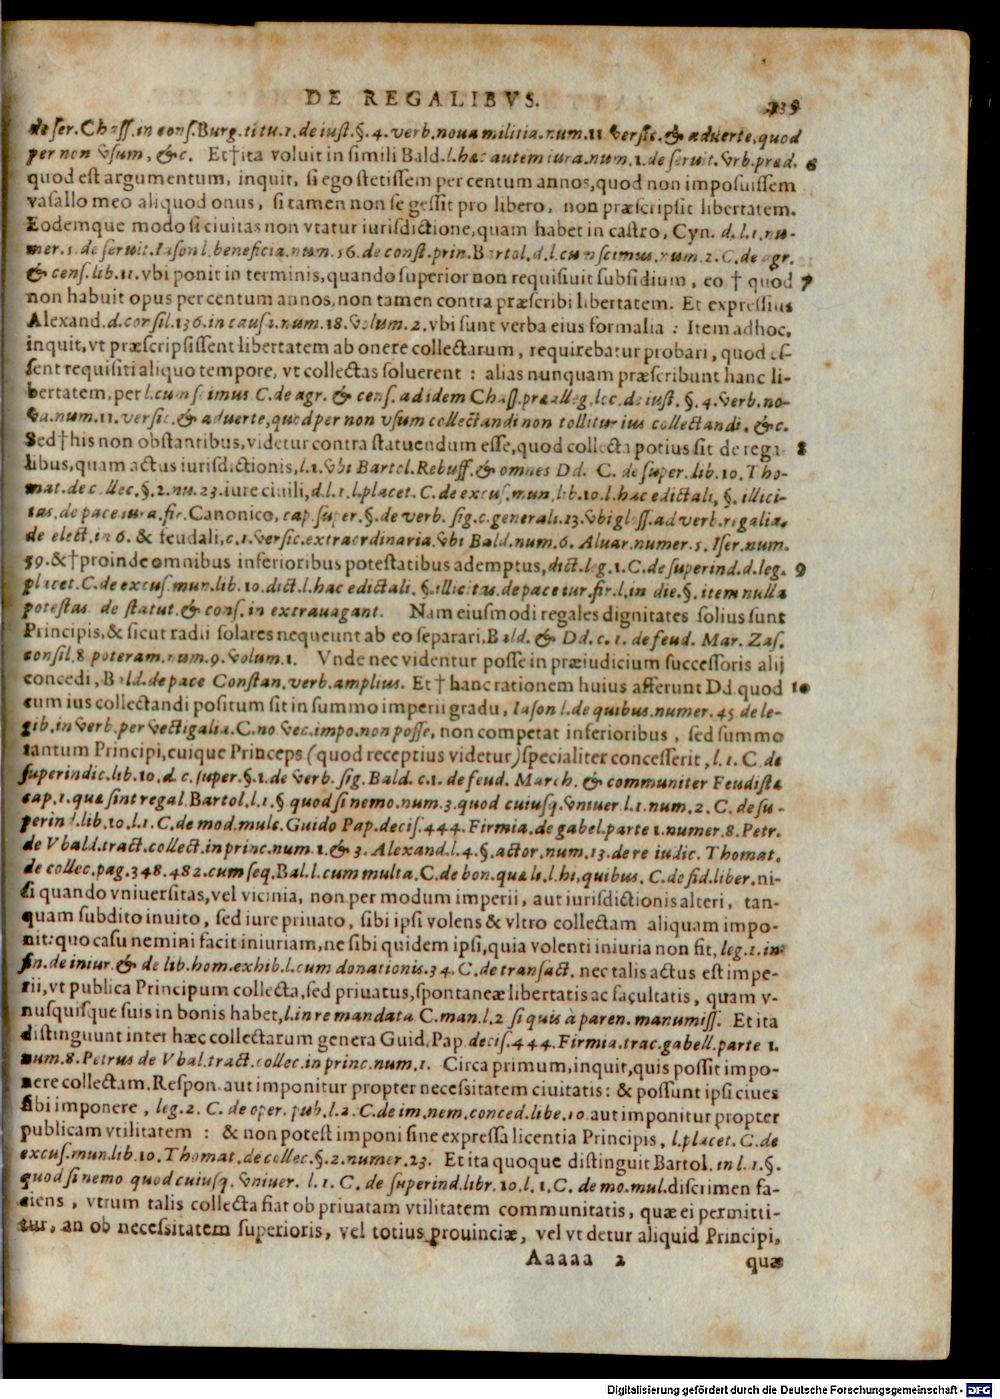 DE REGALIBVS. 739
de ser. Chass. in cons. Burg. titu. 1. de iust. §. 4. verb. noua militia. num. 11 versic. & aduerte, quod
per non vsum, &c. Et † ita voluit in simili Bald. l. hac autem iura. num. 1. de seruit. vrb. præd. 6
quod est argumentum, inquit, si ego stetissem per centum annos, quod non imposuissem
vasallo meo aliquod onus, si tamen non se gessit pro libero, non præscripsit libertatem.
Eodemque modo si ciuitas non vtatur iurisdictione, quam habet in castro, Cyn. d. l. 1. nu-
mer. 5. de seruit. Iason l. beneficia. num. 56. de const. prin. Bartol. d. l. cum scimus. num. 2. C. de agr.
& cens. lib. 11. vbi ponit in terminis, quando superior non requisiuit subsidium, eo † quod 7
non habuit opus per centum annos, non tamen contra præscribi libertatem. Et expressius
Alexand. d. consil. 136. in causa. num. 18. volum. 2. vbi sunt verba eius formalia : Item adhoc,
inquit, vt præscripsissent libertatem ab onere collectarum, requirebatur probari, quod es-
sent requisiti aliquo tempore, vt collectas soluerent : alias nunquam præscribunt hanc li-
bertatem, per l. cum scimus C. de agr. & cens. ad idem Chass. præalleg. loc. de iust. §. 4. verb. no-
ua. num. 11. versic. & aduerte, quod per non vsum collectandi non tollitur ius collectandi, &c.
Sed † his non obstantibus, videtur contra statuendum esse, quod collecta potius sit de rega- 8
libus, quam actus iurisdictionis, l. 1. vbi Bartol. Rebuff. & omnes Dd. C. de super. lib. 10. Tho-
mat. de collec. §. 2. nu. 23. iure ciuili, d. l. 1. l. placet. C. de excus. mun. lib. 10. l. hac edictali, §. illici-
tas, de pace iura. fir. Canonico, cap. super. §. de verb. sig. c. generali. 13. vbi gloss. ad verb. regalia.
de elect. in 6. & feudali, c. 1. versic. extraordinaria. vbi Bald. num. 6. Aluar. numer. 5. Iser. num.
59. & † proinde omnibus inferioribus potestatibus ademptus, dict. leg. 1. C. de superind. d. leg. 9
placet. C. de excus. mun. lib. 10. dict. l. hac edictali. §. illicitas. de pace tur. fir. l. in die. §. item nulla
potestas de statut. & cons. in extrauagant. Nam eiusmodi regales dignitates solius sunt
Principis, & sicut radii solares nequeunt ab eo separari. Bald. & Dd. c. 1. de feud. Mar. Zas.
consil. 8 poteram. num. 9. volum. 1. Vnde nec videntur posse in præiudicium successoris alij
concedi, Bald. de pace Constan. verb. amplius. Et † hanc rationem huius afferunt Dd. quod 10
cum ius collectandi positum sit in summo imperii gradu, Iason l. de quibus. numer. 45 de le-
gib. in verb. per vectigalia. C. no. vec. impo. non posse, non competat inferioribus, sed summo
tantum Principi, cuique Princeps (quod receptius videtur) specialiter concesserit, l. 1. C. de
superindic. lib. 10. d. c. super. §. 1. de verb. sig. Bald. c. 1. de feud. March. & communiter Feudistæ
cap. 1. quæ sint regal. Bartol. l. 1. § quod si nemo. num. 3. quod cuiusq. vniuer. l. 1. num. 2. C. de su-
perind. lib. 10. l. 1. C. de mod. mulc. Guido Pap. decis. 444. Firmia. de gabel. parte 1. numer. 8. Petr.
de Vbald. tract. collect. in princ. num. 1. & 3. Alexand. l. 4. §. actor. num. 13. de re iudic. Thomat.
de collec. pag. 348. 482. cum seq. Bal. l. cum multa. C. de bon. quæ li. l. hi, quibus. C. de fid. liber. ni-
si quando vniuersitas, vel vicinia, non per modum imperii, aut iurisdictionis alteri, tan-
quam subdito inuito, sed iure priuato, sibi ipsi volens & vltro collectam aliquam impo-
nit: quo casu nemini facit iniuriam, ne sibi quidem ipsi, quia volenti iniuria non fit, leg. 1. in
fin. de iniur. & de lib. hom. exhib. l. cum donationis. 34. C. de transact. nec talis actus est impe-
rii, vt publica Principum collecta, sed priuatus, spontaneæ libertatis ac facultatis, quam v-
nusquisque suis in bonis habet, l. in re mandata C. man. l. 2 si quis à paren. manumiss. Et ita
distinguunt inter hæc collectarum genera Guid. Pap decis. 444. Firmia. trac. gabell. parte 1.
num. 8. Petrus de Vbal. tract. collec. in princ. num. 1. Circa primum, inquit, quis possit impo-
nere collectam. Respon. aut imponitur propter necessitatem ciuitatis: & possunt ipsi ciues
sibi imponere, leg. 2. C. de oper. pub. l. 2. C. de im. nem. conced. libe. 10. aut imponitur propter
publicam vtilitatem : & non potest imponi sine expressa licentia Principis, l. placet. C. de
excus. mun. lib. 10. Thomat. de collec. §. 2. numer. 23. Et ita quoque distinguit Bartol. in l. 1. §.
quod si nemo quod cuiusq. vniuer. l. 1. C. de superind. libr. 10. l. 1. C. de mo. mul. discrimen fa-
ciens, vtrum talis collecta fiat ob priuatam vtilitatem communitatis, quæ ei permitti-
tur, an ob necessitatem superioris, vel totius prouinciæ, vel vt detur aliquid Principi,
Aaaaa 2 quæ
Digitalisierung gefördert durch die Deutsche Forschungsgemeinschaft - DFG